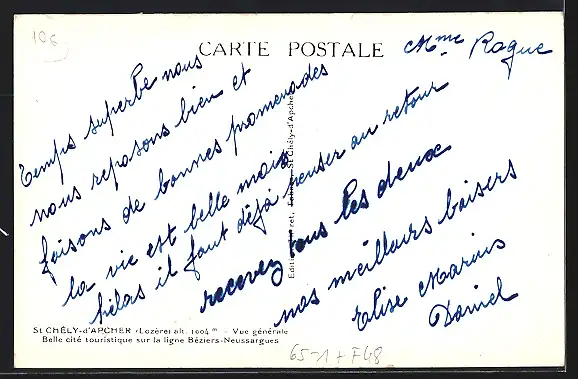 10€
CARTE POSTALE
Mme Raque
Temps superbe nous
nous reposons bien et
faisons de bonnes promenades
la vie est belle mais
hélas il faut déjà penser au retour
recevez tous les deux
nos meilleurs baisers
Elise Marius
Daniel
St CHÉLY-d'APCHER (Lozère) alt. 1004 m - Vue générale
Belle cité touristique sur la ligne Béziers-Neussargues
St Chély-d'Apcher
65-1+F48